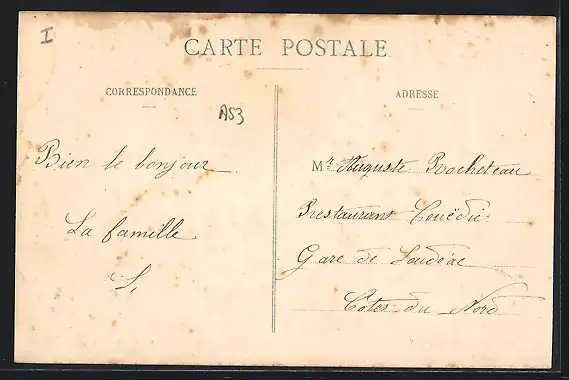 I
CARTE POSTALE
CORRESPONDANCE
A53
Bien le bonjour
La famille
S,
ADRESSE
Mr Auguste Rocheteau
Restaurant Couëdic
Gare de Loudéac
Côtes du Nord